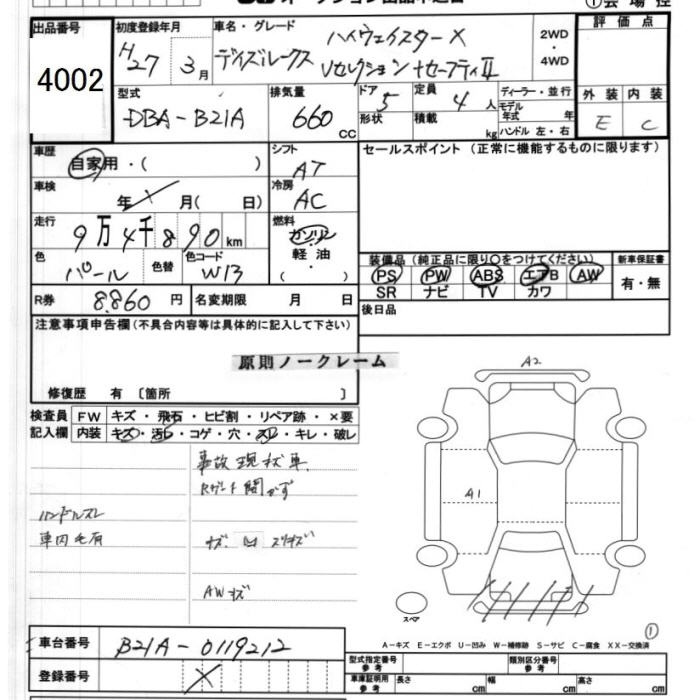 ①会場控
出品番号
4002
初度登録年月
H27 3月
車名・グレード
ハイウェイスターX
デイズルークス Vセレクション+セーフティⅡ
2WD
・
4WD
評価点
外装 内装
E C
型式
DBA-B21A
排気量
660 cc
ドア 5
形状
定員 4人
積載 kg
ディーラー・並行
モデル年式 年
ハンドル 左・右
車歴
自家用・( )
シフト
AT
セールスポイント(正常に機能するものに限ります)
車検
年 月( 日)
冷房
AC
走行
9万4千890km
燃料
ガソリン
軽油
・( )
色
パール
色替
色コード
W13
装備品(純正品に限り〇をつけてください)
新車保証書
PS PW ABS エアB AW
SR ナビ TV カワ
有・無
R券 8,860円
名変期限 月 日
後日品
注意事項申告欄(不具合内容等は具体的に記入して下さい)
原則ノークレーム
修復歴 有〔箇所 〕
検査員
記入欄
FW キズ・飛石・ヒビ割・リペア跡・×要
内装 キズ・汚レ・コゲ・穴・スレ・キレ・破レ
事故現状車
Rゲート開かず
ハンドルスレ
車内毛有
AWキズ
A2
A1
スペア
①
A-キズ E-エクボ U-凹み W-補修跡 S-サビ C-腐食 XX-交換済
車台番号
B21A-0119212
登録番号
型式指定番号
参考
類別区分番号
参考
車庫証明用
参考
長さ cm
幅 cm
高さ cm